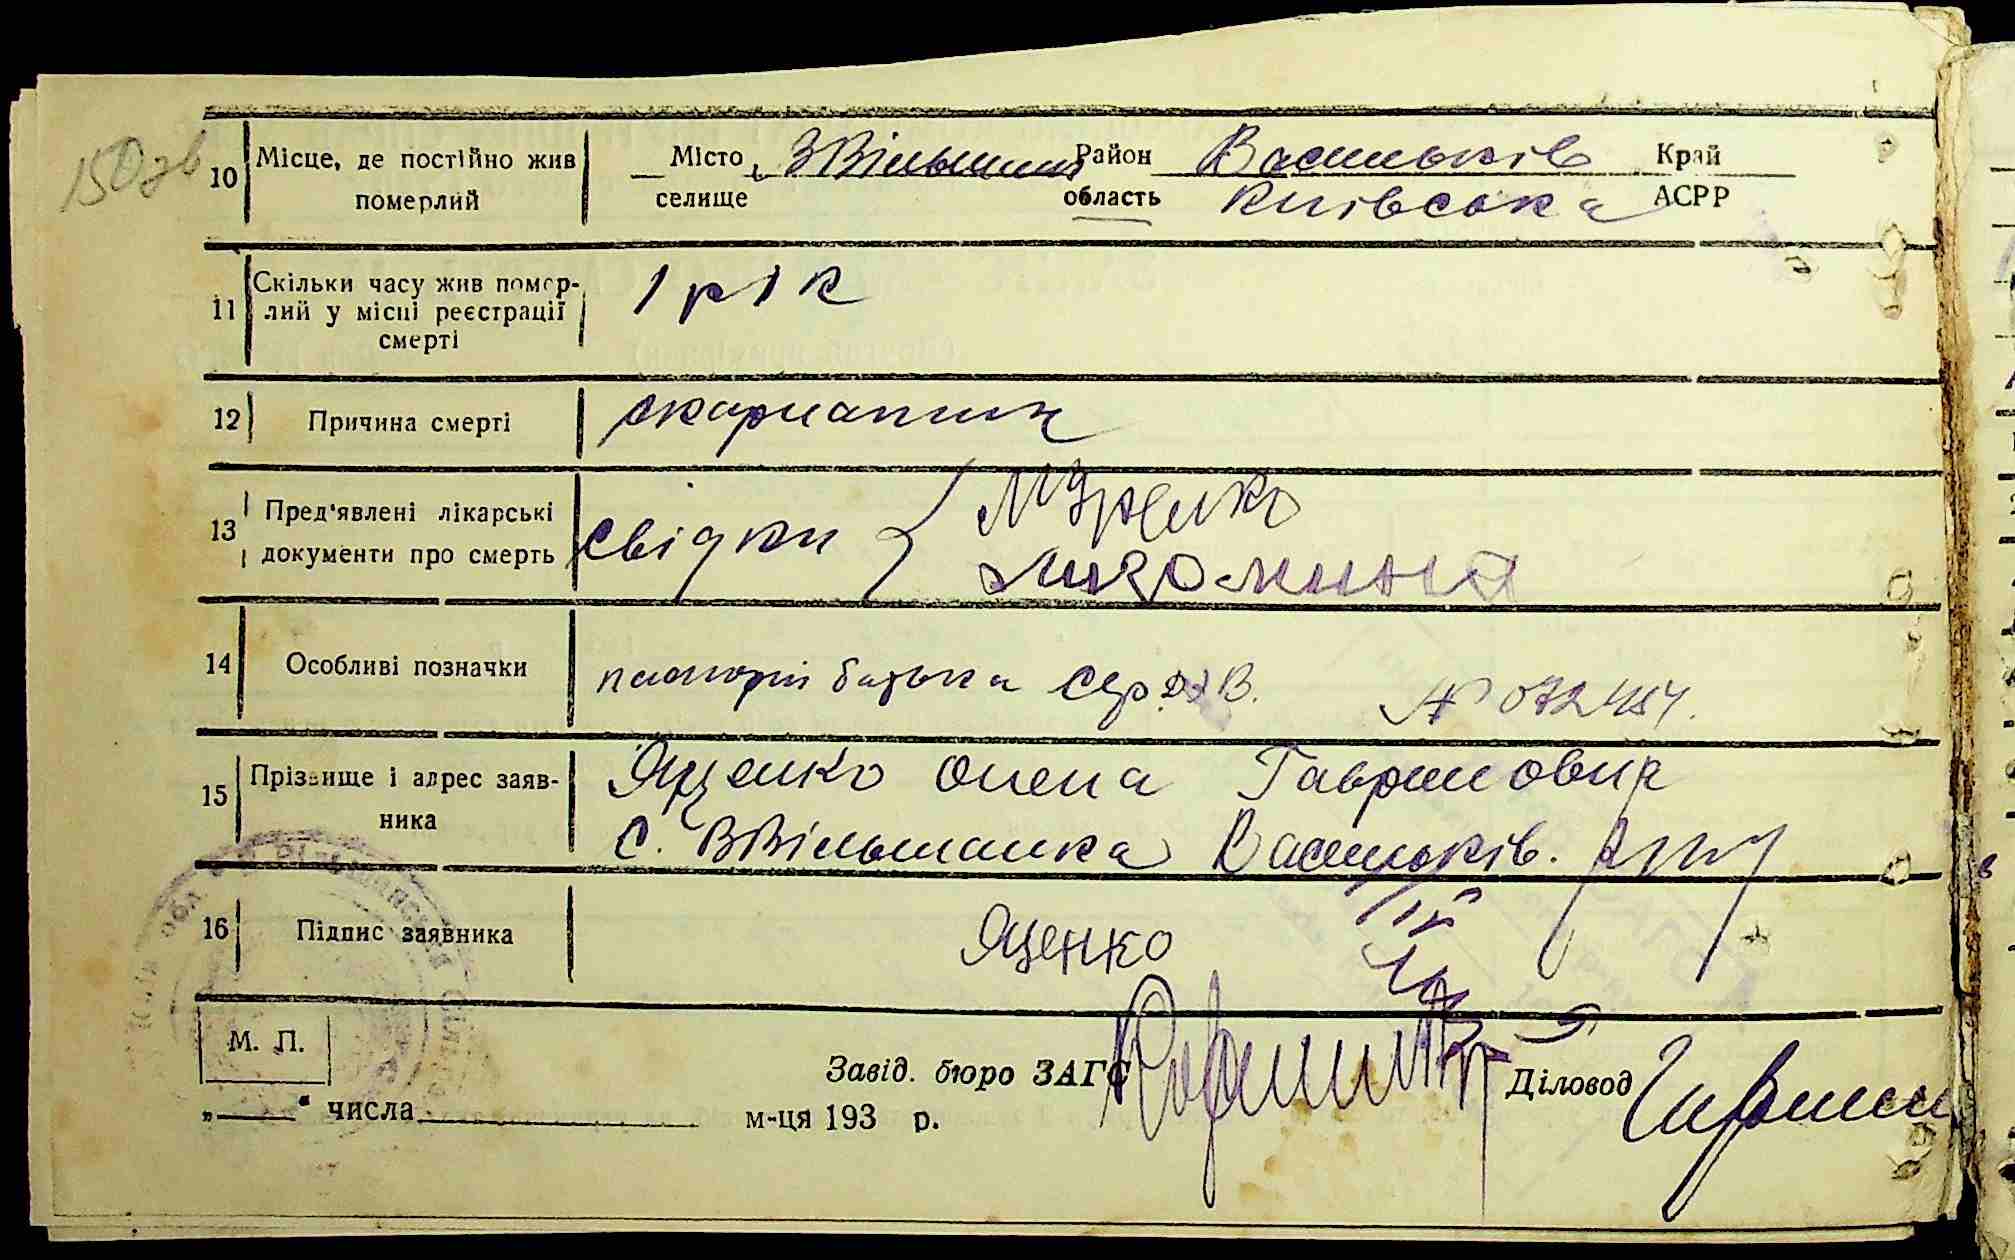 150 зв
10 Місце, де постійно жив померлий
Місто селище В Вільшанка Район область Васильків Київська Край АСРР
11 Скільки часу жив помер-
лий у місці реєстрації
смерті
1 рік
12 Причина смерті скарлатина
13 Пред'явлені лікарські
документи про смерть
свідки
14 Особливі позначки
паспорт батька Сер. № 072454.
15 Прізвище і адрес заяв-
ника
Яценко Олена Гавриловна
с. ВВільшанка Васильків. р-ну
16 Підпис заявника Яценко
М. П.
Завід. бюро ЗАГС
Діловод
„ “ числа м-ця 193 р.